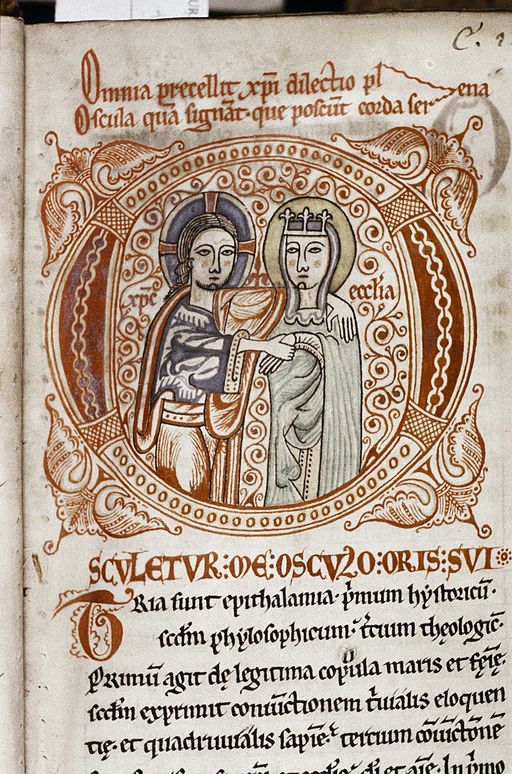 C. 1
Omnia precellit xp̄i dilectio plena
Oscula quā signāt· que poscūt corda ser
xpē
ecclia
SCVLETVR: ME: OSCVLO: ORIS: SVI:
TRia sunt epithalamia· p̄mum hystoricū·
scd̄m phylosophicum· t̄cium theologic̄·
PRimū agit de legitima cop̄ula maris et fēīe·
scd̄m exprimit coniūctionem t̄uialis eloquen
tie· et quadruuialis sapiē· tercium cōiūctonē